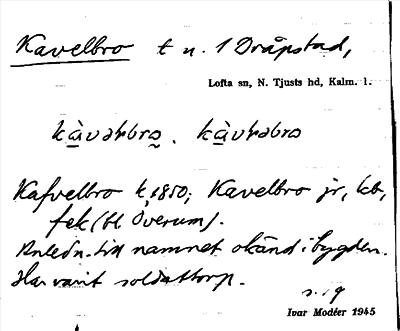 Kavelbro t n. 1 Dråpstad,
Lofta sn, N. Tjusts hd, Kalm. l.
kàvərbro. kàvrəbro
Kafvelbro k 1850; Kavelbro jr, kb,
fek (bl Överum).
Anledn. till namnet okänd i bygden.
Har varit soldattorp.
s. 19
Ivar Modéer 1945